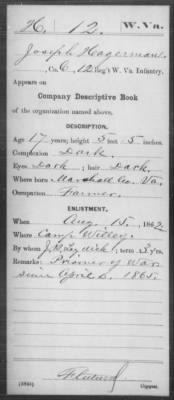 H. 12. W. Va.
Joseph Hagerman,
, Co. C, 12 Reg't W. Va. Infantry.
Appears on
Company Descriptive Book
of the organization named above.
DESCRIPTION.
Age 17 years; height 5 feet 5 inches.
Complexion Dark.
Eyes Dark; hair Dark.
Where born Marshall Co. Va.
Occupation Farmer.
ENLISTMENT.
When Aug. 15, 1862
Where Camp Willey.
By whom J. R. ; term 3 yrs.
Remarks: Prisoner of War
since April 6, 1865.
Copyist.